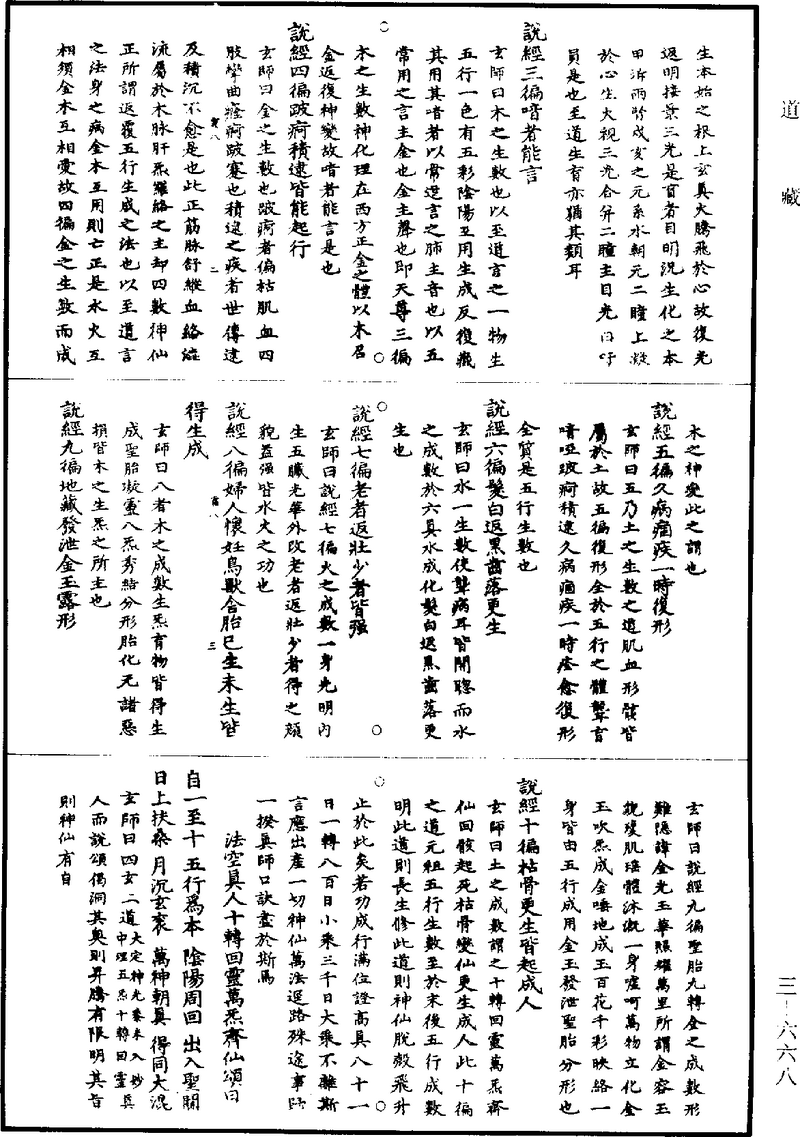 道藏
生本始之根上玄真火騰飛於心故復光
返明接葉三光是盲者目明況生化之本
甲泝兩腎成亥之元系水朝元二瞳上凝
於心生火視三光合并二瞳主目光日呼
員是也至道生育亦猶其類耳
說經三徧喑者能言
玄師曰木之生數也以至道言之一物生
五行一色有五彩陰陽互用生成反復歲
其用其喑者以常道言之肺主音也以五
常用之言主金也金主聲也即天尊三徧
木之生數神化理在西方正金之體以木召
金返復神變故喑者能言是也
說經四徧跛痾積逮皆能起行
玄師曰金之生數也跛痾者偏枯肌血四
肢攣曲癃痾跛蹇也積逮之疾者世傳逮
及積沉不愈是也此正筋脉舒縱血絡經
流屬於木脉肝炁羅絡之主却四數神仙
正所謂返覆五行生成之法也以至道言
之法身之病金木互用則亡正是水火互
相須金木互相愛故四徧金之生數而成
木之神變此之謂也
說經五徧久病痼疾一時復形
玄師曰五乃土之生數之道肌血形骸皆
屬於土故五徧復形全於五行之體聾盲
喑啞跛痾積逮久病痼疾一時痊愈復形
全質是五行生數也
說經六徧髮白返黑齒落更生
玄師曰水一生數使聾病耳皆開聰而水
之成數於六真水成化髮白返黑齒落更
生也
說經七徧老者返壯少者皆強
玄師曰說經七徧火之成數一身光明內
生五臟光華外改老者返壯少者得之顏
貌益强皆水火之功也
說經八徧婦人懷妊鳥獸含胎已生未生皆
得生成
玄師曰八者木之成數生炁育物皆得生
成聖胎凝靈八炁秀結分形胎化无諸惡
損皆木之生炁之所主也
說經九徧地藏發泄金玉露形
玄師曰說經九徧聖胎九轉金之成數形
難隱諱金光玉華照耀萬里所謂金容玉
貌瓊肌瑤體沐溉一身噓呵萬物立化金
玉吹炁成金唾地成玉百花千彩映絡一
身皆由五行成用金玉發泄聖胎分形也
說經十徧枯骨更生皆起成人
玄師曰土之成數謂之十轉回靈萬炁齊
仙回骸起死枯骨變仙更生成人此十徧
之道元祖五行生數至於末後五行成數
明此道則長生修此道則神仙脫殼飛升
止於此矣若功成行滿位證高真八十一
日一轉八百日小乘三千日大乘不離斯
言應出産一切神仙萬法逕路殊途事歸
一揆真師口訣盡於斯焉
法空真人十轉回靈萬炁齊仙頌曰
自一至十五行爲本 陰陽周回 出入聖關
日上扶桑 月沉玄袤 萬神朝真 得同大混
玄師曰四玄二道大定神光泰來入妙真中理五炁十轉回靈
人而說頌偈洞其奧則昇騰有限明其旨
則神仙有自
三—六六八